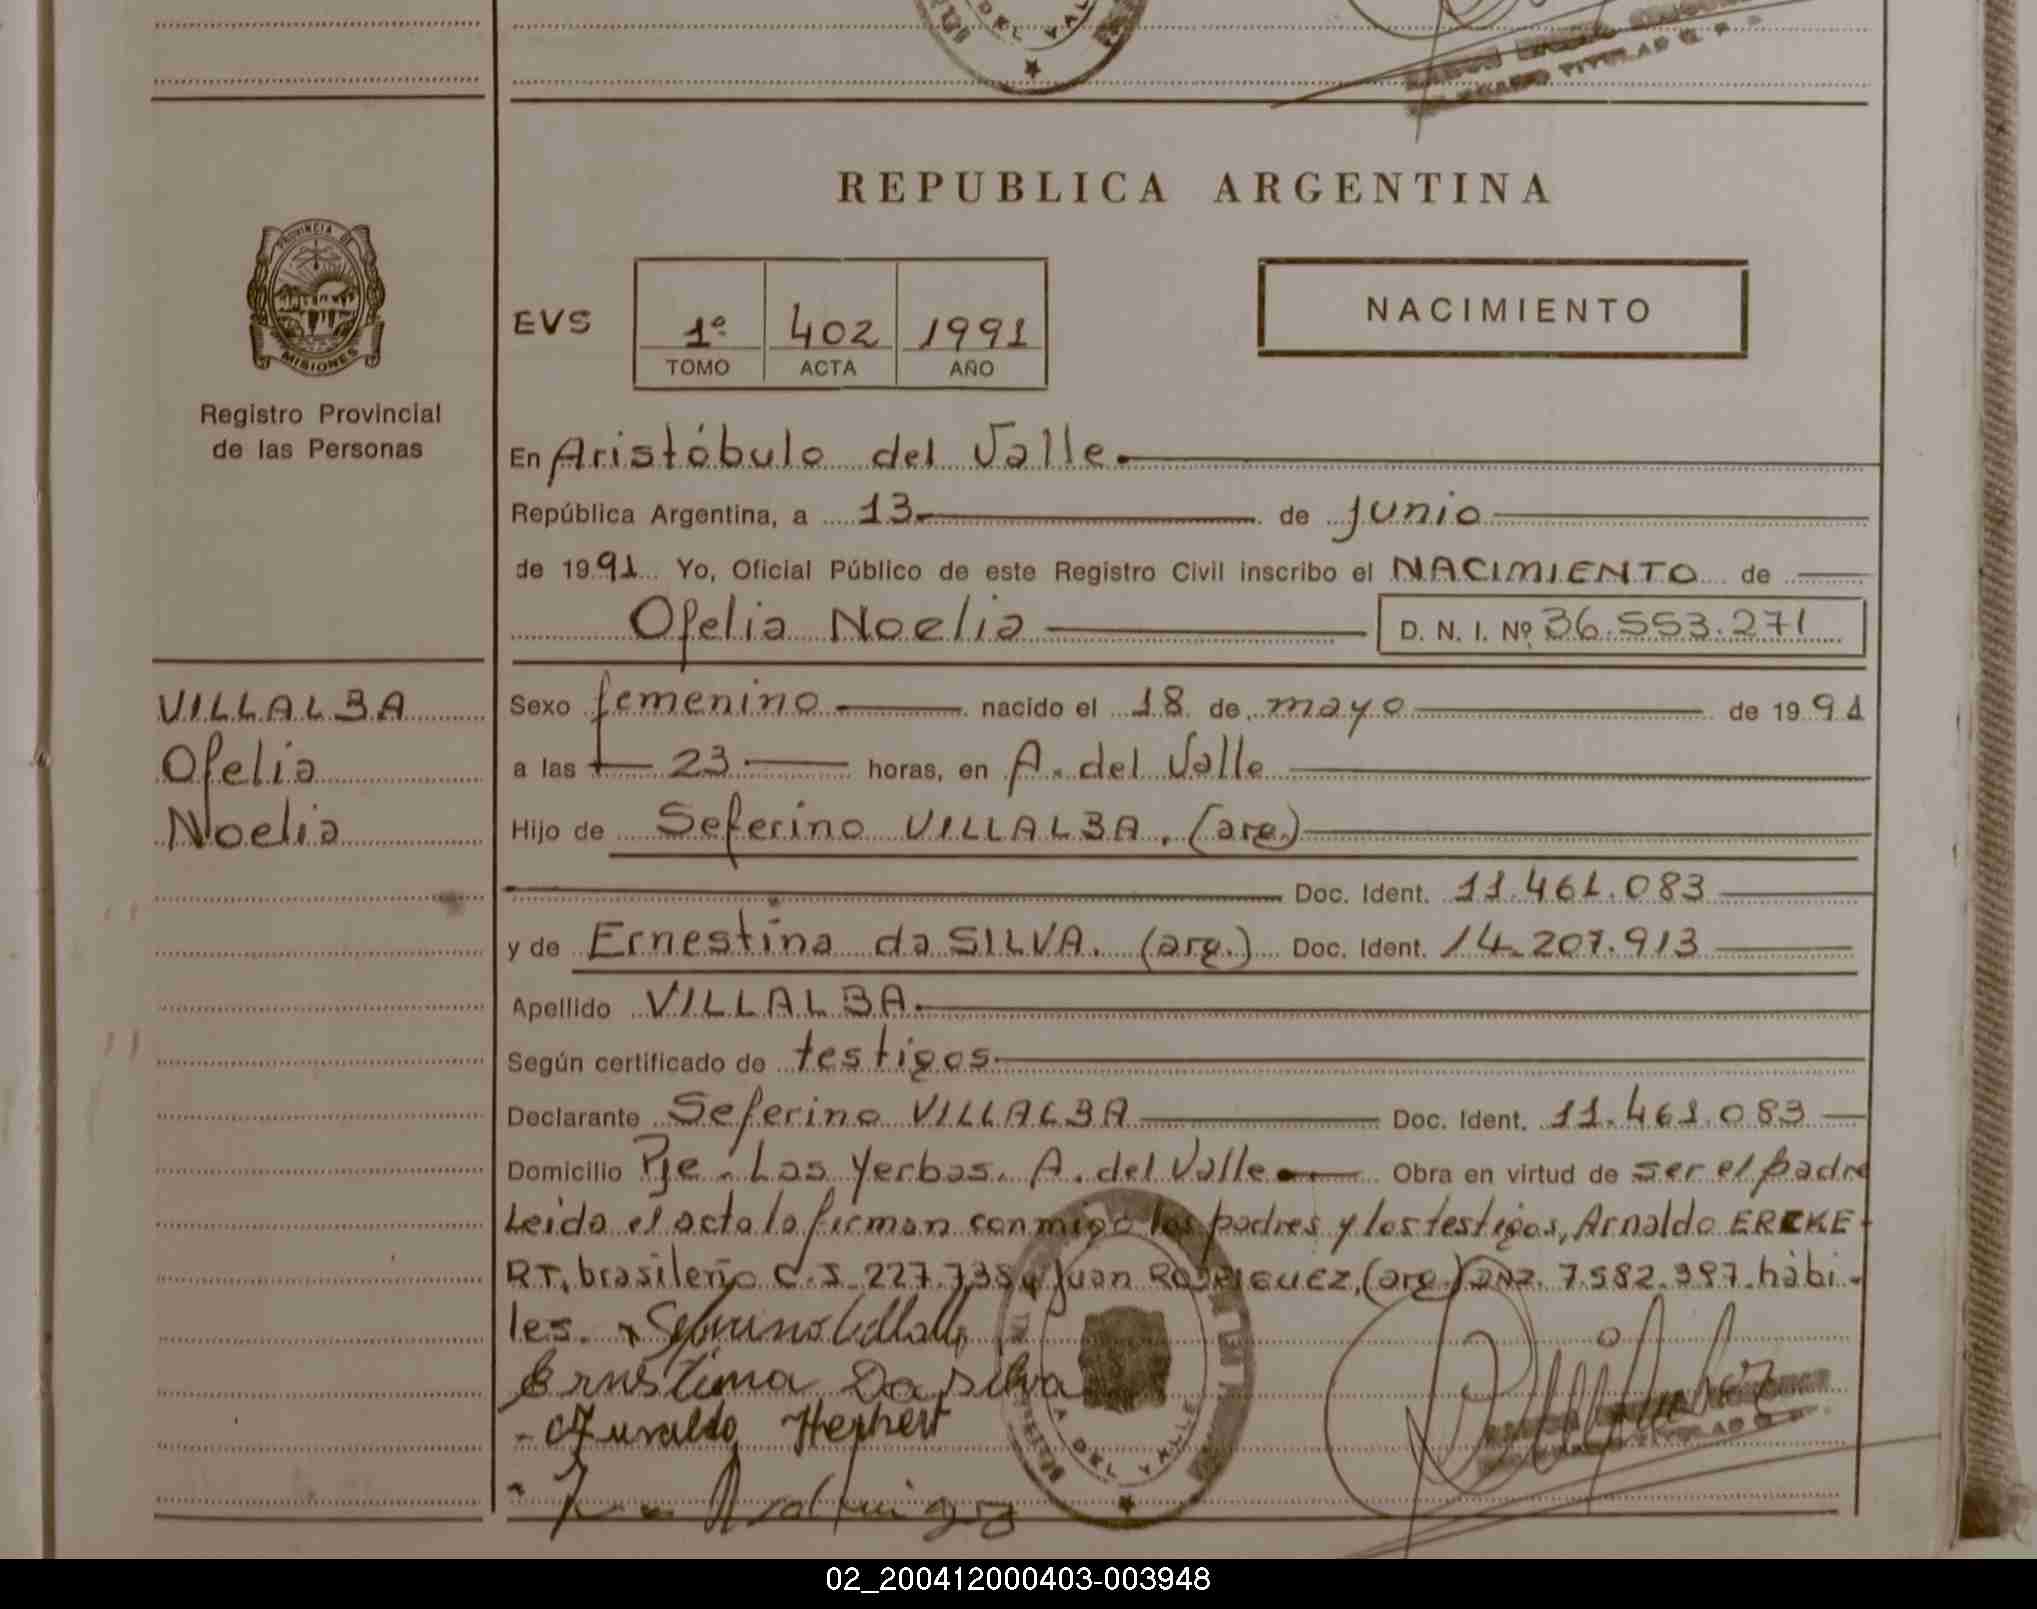 DEL VAL
TITULAR
REPUBLICA ARGENTINA
PROVINCIA DE
MISIONES
Registro Provincial
de las Personas
EVS
1º 402 1991
TOMO ACTA AÑO
NACIMIENTO
En Aristóbulo del Valle.
República Argentina, a 13 de junio
de 1991 Yo, Oficial Público de este Registro Civil inscribo el NACIMIENTO de
Ofelia Noelia D. N. I. Nº 36.553.271
VILLALBA
Ofelia
Noelia
Sexo femenino nacido el 18 de mayo de 1991
a las 23 horas, en A. del Valle
Hijo de Seferino VILLALBA. (arg.)
Doc. Ident. 11.461.083
y de Ernestina da SILVA. (arg.) Doc. Ident. 14.207.913
Apellido VILLALBA.
Según certificado de testigos.
Declarante Seferino VILLALBA Doc. Ident. 11.461.083
Domicilio Pje. Las Yerbas. A. del Valle. Obra en virtud de ser el padre
Leida el acta la firman conmigo los padres y los testigos, Arnaldo ERCKE-
RT, brasileño C.I. 227.735 y Juan RODRIGUEZ, (arg.) 7.582.397. hábi-
les.
Ernestina Da Silva
Juan Rodriguez
DEL VALLE
TITULAR
02_200412000403-003948